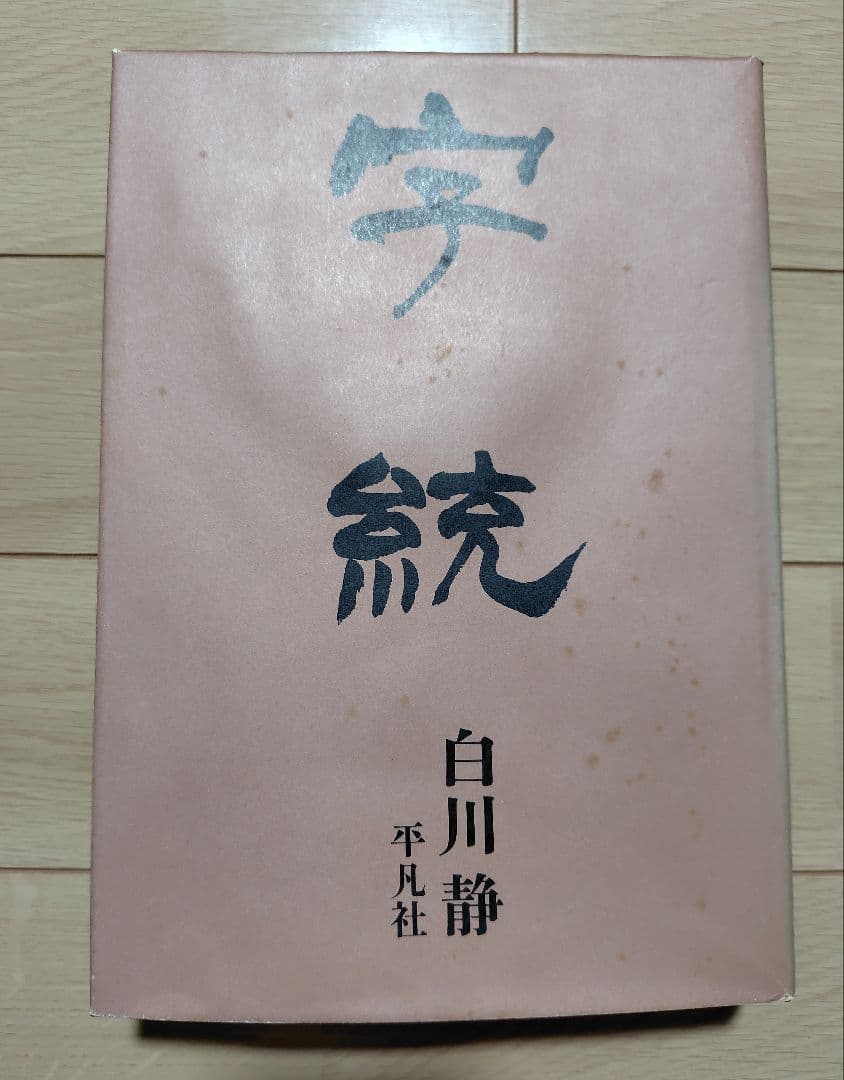 字統
白川静
平凡社